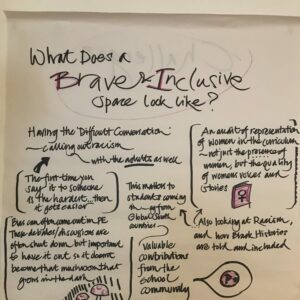 What Does a
Brave & Inclusive
space look like?
Having the 'Difficult Conversation'
calling out racism
with the adults as well
The first time you
say it to someone
is the hardest... then
it gets easier
Bias can often come out in PE
These debates/discussions are
often shut down, but important
to have it out so it doesn't
become that mushroom that
grows in the dark
This matters to
students coming
from
global south
countries
Valuable
contributions
from the
school
community
An audit of representation
of women in the curriculum
not just the presence of
women, but the quality of
womens voices and
stories
Also looking at Racism,
and how Black Histories
are told and included